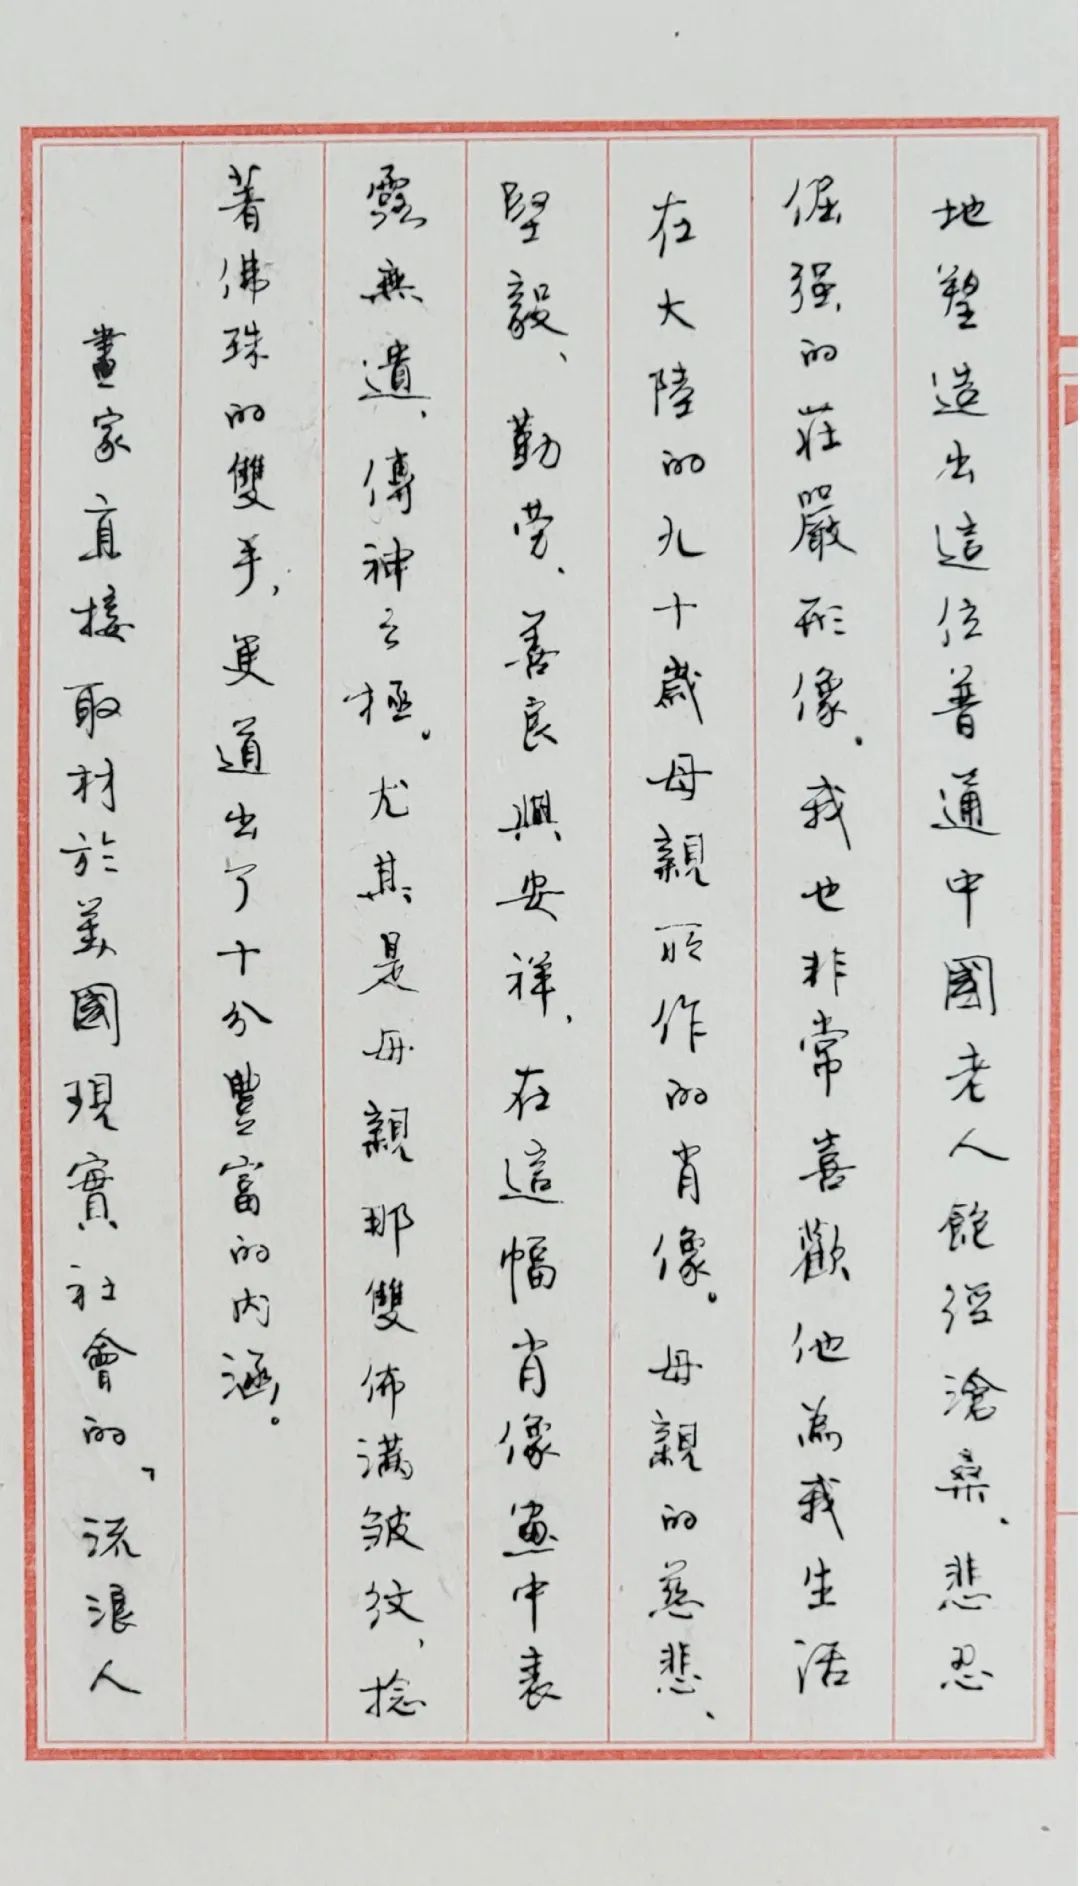 地塑造出這位普通中國老人飽經滄桑、悲忍
倔强的莊嚴形像。我也非常喜歡他為我生活
在大陸的九十歲母親所作的肖像。母親的慈悲、
堅毅、勤勞、善良與安祥，在這幅肖像畫中表
露無遺，傳神之極。尤其是母親那雙佈满皱纹，捻
著佛珠的雙手，更道出了十分豐富的内涵。
畫家直接取材於美國現實社會的「流浪人